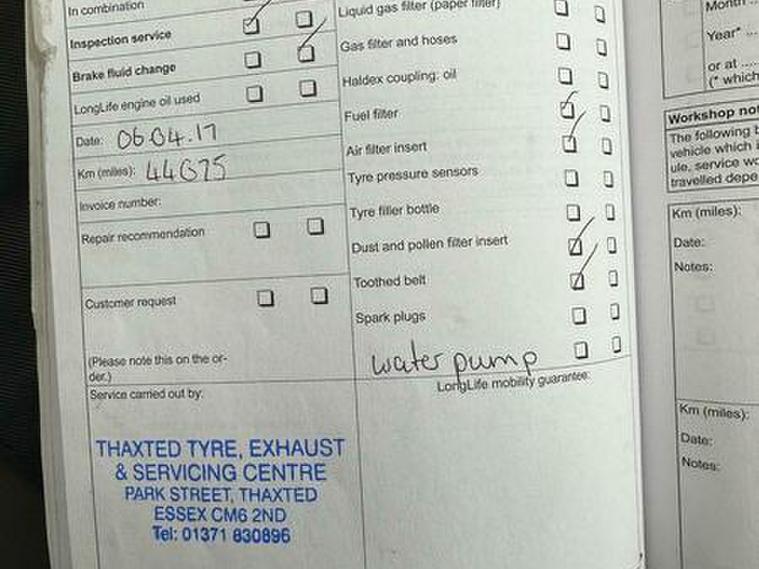 In combination
Inspection service
Brake fluid change
LongLife engine oil used
Date: 06 04.17
Km (miles): 44675
Invoice number:
Repair recommendation
Customer request
(Please note this on the or-
der.)
Service carried out by:
THAXTED TYRE, EXHAUST
& SERVICING CENTRE
PARK STREET, THAXTED
ESSEX CM6 2ND
Tel: 01371 830896
Liquid gas filter (paper filter)
Gas filter and hoses
Haldex coupling: oil
Fuel filter
Air filter insert
Tyre pressure sensors
Tyre filler bottle
Dust and pollen filter insert
Toothed belt
Spark plugs
water pump
LongLife mobility guarantee:
Month ...
Year* ...
or at ....
(* which
Workshop not
The following b
vehicle which i
ule, service wo
travelled depe
Km (miles):
Date:
Notes:
Km (miles):
Date:
Notes: